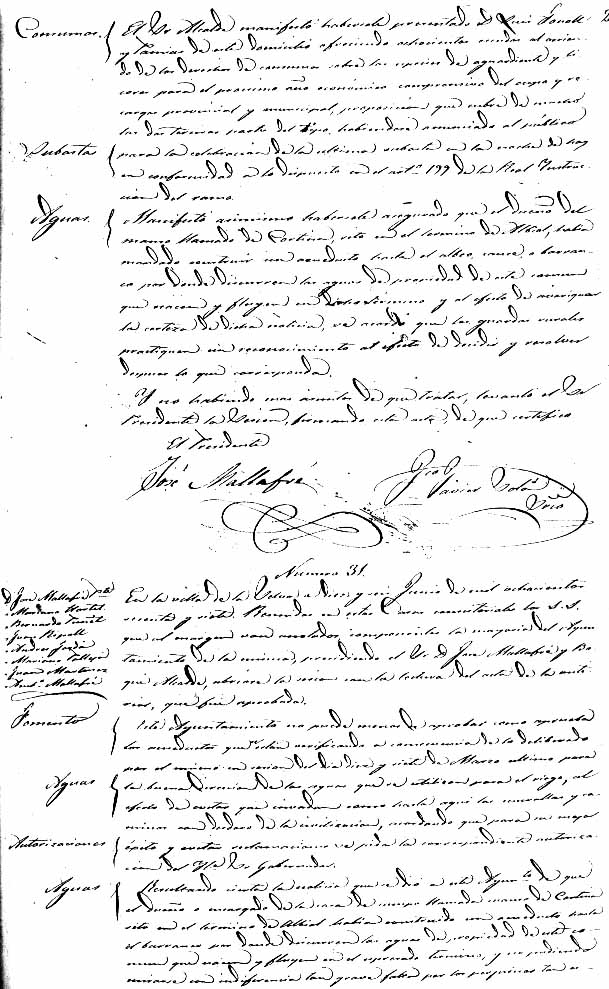 Consumos. El Sr Alcalde manifestó habersele presentado Dn Luis
y de este domicilio ofreciendo ochocientos escudos al arrien-
do de los derechos de consumos sobre las especies de aguardiente y li-
cores para el procsimo año economico comprensivo del cupo y re-
cargos provincial y municipal, proposicion que cubre de mucho
las dos terceras partes del tipo, habiendose anunciado al público
Subasta para la celebracion de la ultima subasta en la noche de hoy
en conformidad a lo dispuesto en el arto 199 de la Real Instruc-
cion del ramo.
Aguas. Manifestó asimismo habersele asegurado que el dueño del
manso llamado de sito en el termino de Alcol, habia
mandado construir un conducto hasta el alveo, cauce o barran-
co por donde discurren las aguas de propiedad de este comun
que nacen y fluyen en dicho termino y al efecto de averiguar
la certeza de dicha noticia, se acordó que los guardas rurales
practiquen un reconocimiento al efecto de decidir y resolver
despues lo que corresponda.
Y no habiendo mas asuntos de que tratar, levantó el Sr
Presidente la Sesion, firmando esta acta, de que certifico
El Presidente
José Mallafré
Javier
Srio
Numero 31.
Dn José Mallafré
Bernardo
Juan
Andres
Mariano
Juan Martinez
Mallafré
En la villa de la Selva a diez y seis Junio de mil ochocientos
sesenta y siete. Reunidos en estas Casas consistoriales los S.S.
que al margen van anotados, componentes la mayoria del Ayun-
tamiento de la misma, presidiendo el Sr Dn José Mallafré y Bo
qué Alcalde, abriose la sesion con la lectura del acta de la ante-
rior, que fué aprobada.
Fomento Este Ayuntamiento no puede menos de aprobar como aprueba
los conductos que se están verificando a consecuencia de lo deliberado
por el mismo en sesion del dia diez y siete de Marzo ultimo para
Aguas la buena direccion de las aguas que se utilizan para el riego, al
efecto de evitar que invadan como hasta aqui las murallas y ca-
minos con desdoro de la civilizacion, acordando que para su mejor
Autorizaciones éxito y evitar reclamaciones se pida la correspondiente autoriza-
cion del Sr Gobernador.
Aguas Resultando cierta la noticia que se dió a este Ayunto de que
el dueño o encargado de la casa de campo llamada manso de
sito en el termino de Alcol habia construido un conducto hasta
el barranco por donde discurren las aguas de propiedad de este co-
mun que nacen y fluyen en el espresado termino, y no pudiendo
mirarse con indiferencia tan grave falta por los perjuicios que